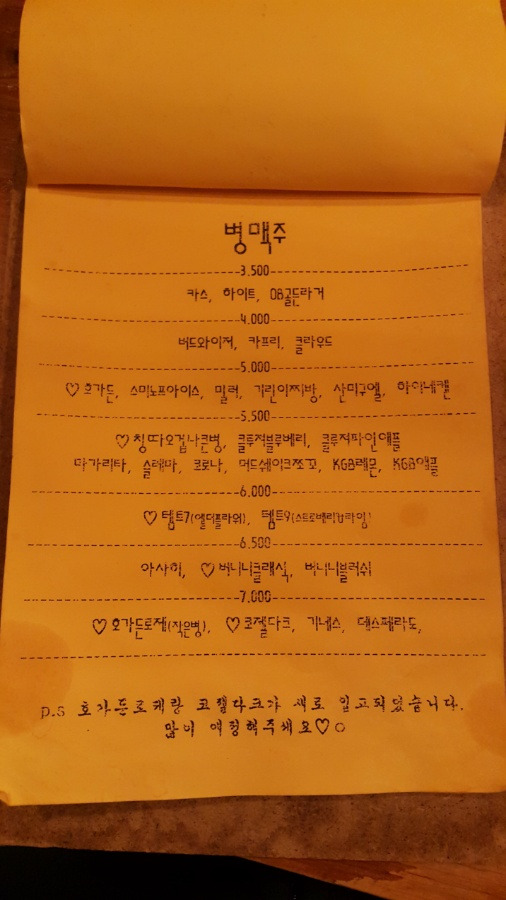 병맥주
3.500
카스, 하이트, OB골든라거
4.000
버드와이저, 카프리, 클라우드
5.000
♡호가든, 스미노프아이스, 밀러, 기린이찌방, 산미구엘, 하이네캔
5.500
♡칭따오겁나큰병, 클루저블루베리, 클루저파인애플
마가리타, 솔레마, 코로나, 머드쉐이크쪼꼬, KGB레몬, KGB애플
6.000
♡템트7(엘더플라워), 템트9(스트로베리&라임)
6.500
아사히, ♡버니니클래식, 버니니블러쉬
7.000
♡호가든로제(작은병), ♡코젤다크, 기네스, 데스페라도,
p.s 호가든로제랑 코젤다크가 새로 입고되었습니다.
많이 애정해주세요♡○